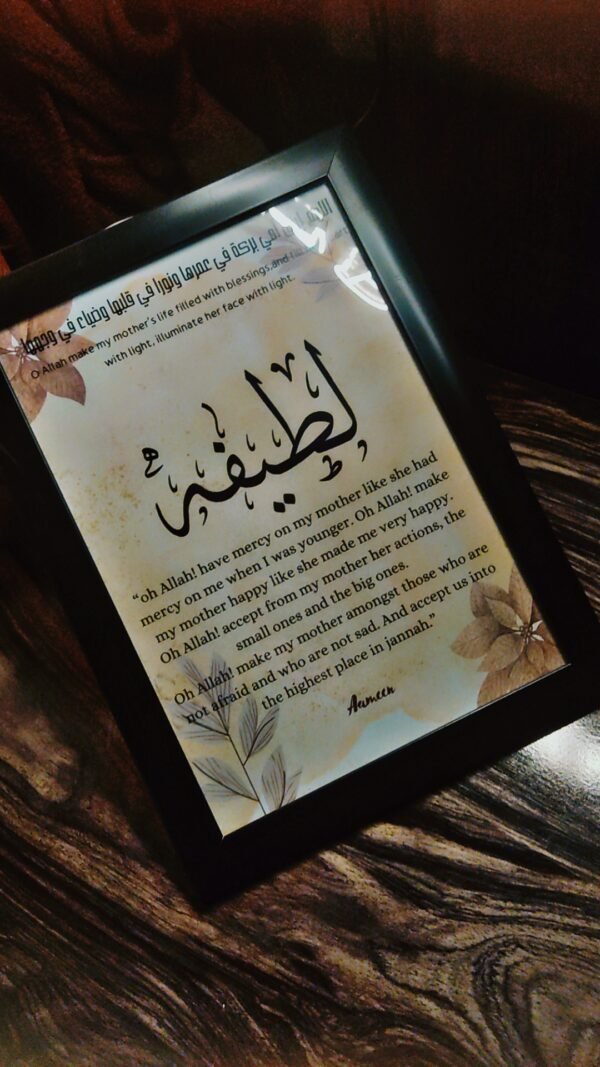 اللهم بركة في عمرها ونورا في قلبها وضياء في وجهها
O Allah make my mother's life filled with blessings,and
with light, illuminate her face with light.
لطيفه
“oh Allah! have mercy on my mother like she had
mercy on me when I was younger. Oh Allah! make
my mother happy like she made me very happy.
Oh Allah! accept from my mother her actions, the
small ones and the big ones.
Oh Allah! make my mother amongst those who are
not afraid and who are not sad. And accept us into
the highest place in jannah.”
Aameen